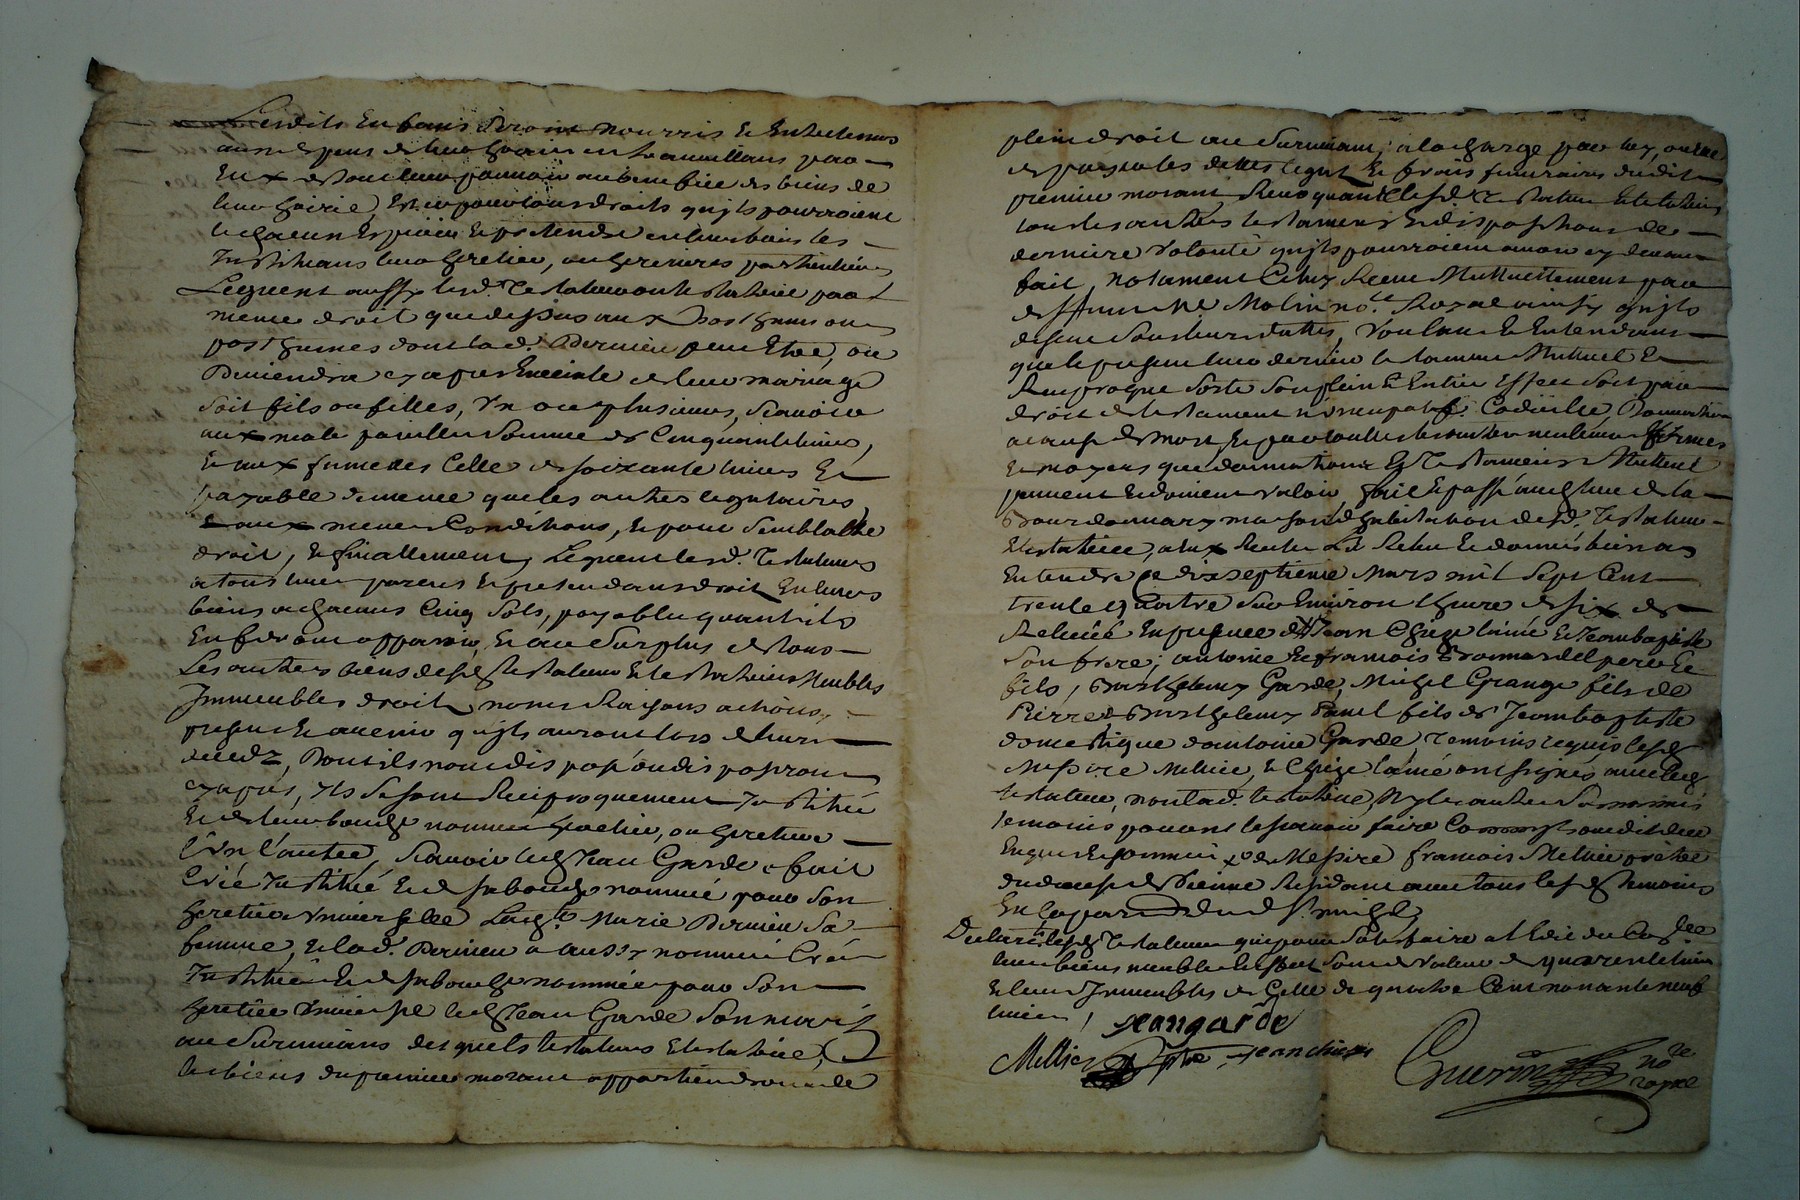 Lesdits Enfans Seront nourris Et Entretenus
aux depens de leur hoirie en travaillans par
Eux de tout leur pouvoir au benefice des biens de
leur hoirie, Et ce pour tous droits qu'ils pourroient
Esperer Et pretendre en leurs biens les
Instituans leurs heritiers, ou heritieres particulieres
Leguent aussy lesd. Testateur et testatrice par
meme droit que dessus aux posthumes ou
posthumes dont lad. Dernieu peut Etre, ou
Deviendra cy apres Enceinte de leur mariage
Soit fils ou filles, Un ou plusieurs, Scavoir
aux male pareille Somme de Cinquante livres,
Et aux fumelles Celle de soixante livres Et
payable de meme que les autres legataires
Et aux memes Conditions, Et pour Semblable
droit, Et finallement Leguent lesd. Testateurs
a tous leurs parens Et pretendans droit En leurs
biens a chacuns Cinq Sols, payables quant ils
En feront apparoir, Et au Surplus de tous
Les autres biens desd. testateur Et testatrice Meubles
Immeubles droits noms Raisons actions,
presens Et avenir qu'ils auront lors de leurs
deceds, Dont ils n'ont disposé ou disposeront
cy apres, Ils Se sont Reciproquement Institué
Et de leur bouche nommés heritier, ou heritiere
L'Un L'autre, Scavoir led. Jean Garde a fait
Créé Institué Et de sa bouche nommé pour Son
heritiere Universelle Lad. Marie Dernieu Sa
femme, Et lad. Dernieu a aussy nommé Créé
Institué Et de sa bouche nommé pour Son
heritier Universel led. Jean Garde Son mary
au Survivans desquels testateur Et testatrice,
les biens du premier mourant appartiendront de
plein droit au Survivant, a la charge par luy, outre
de payer les dettes legats Et frais funeraires dudit
premier mourant, Revoquant lesd. Testateur Et testatrice
tous les autres testamens Et dispositions de
derniere Volonté qu'ils pourroient avoir cy devant
fait, notament Celuy Receu Mutuellement par
deffunt Me Molin no.re Royal ainsy qu'ils
disent Sous leurs dattes, Voulans Et Entendans
que le present leur dernier testament Mutuel Et
Reciproque Sorte Son plein Et Entier Effect Soit par
droit de testament nuncupatif, Codicille, Donnation
a cause de mort Et par toutes les autres meilleures Formes
Et moyens que donnations Et Testamens Mutuel
peuvent Et doivent valoir, fait Et passé au lieu de la
Bourdonnary maison d'habitation desd. Testateur
Et testatrice, a Eux Receu Lu Relu Et donné bien a
Entendre le dixseptieme Mars mil Sept Cent
trente quatre Sur Environ l'heure de six de
Relevée En presence de Jean Chieze l'ainé Et Jean baptiste
Son frere, antoine Et francois pere Et
fils, Barthelemy Garde, Michel Grange fils de
Pierre, Barthelemy fils de Jean baptiste
domestique d'antoine Garde, temoins requis lesd.
Messire Mellier, Et Chieze l'ainé ont signés avec led.
testateur, non lad. testatrice, Ny les autres Susnommés
temoins pour ne le scavoir faire Comme ils ont dit de ce
Enquis Et sommés Messire francois Mellier prêtre
du diocese de Vienne Residant avec tous lesd. temoins
En la par. de St. michel
Declarent lesd. Testateurs que pour Satisfaire a l'Edit du Con.lle
leurs biens meubles Et Effect Sont de Valeur de quarente livres
Et leurs Immeubles de Celle de quatre Cent nonante neuf
livres,
jean garde
Mellier ptre jean chieze
Guerin no.re
royal